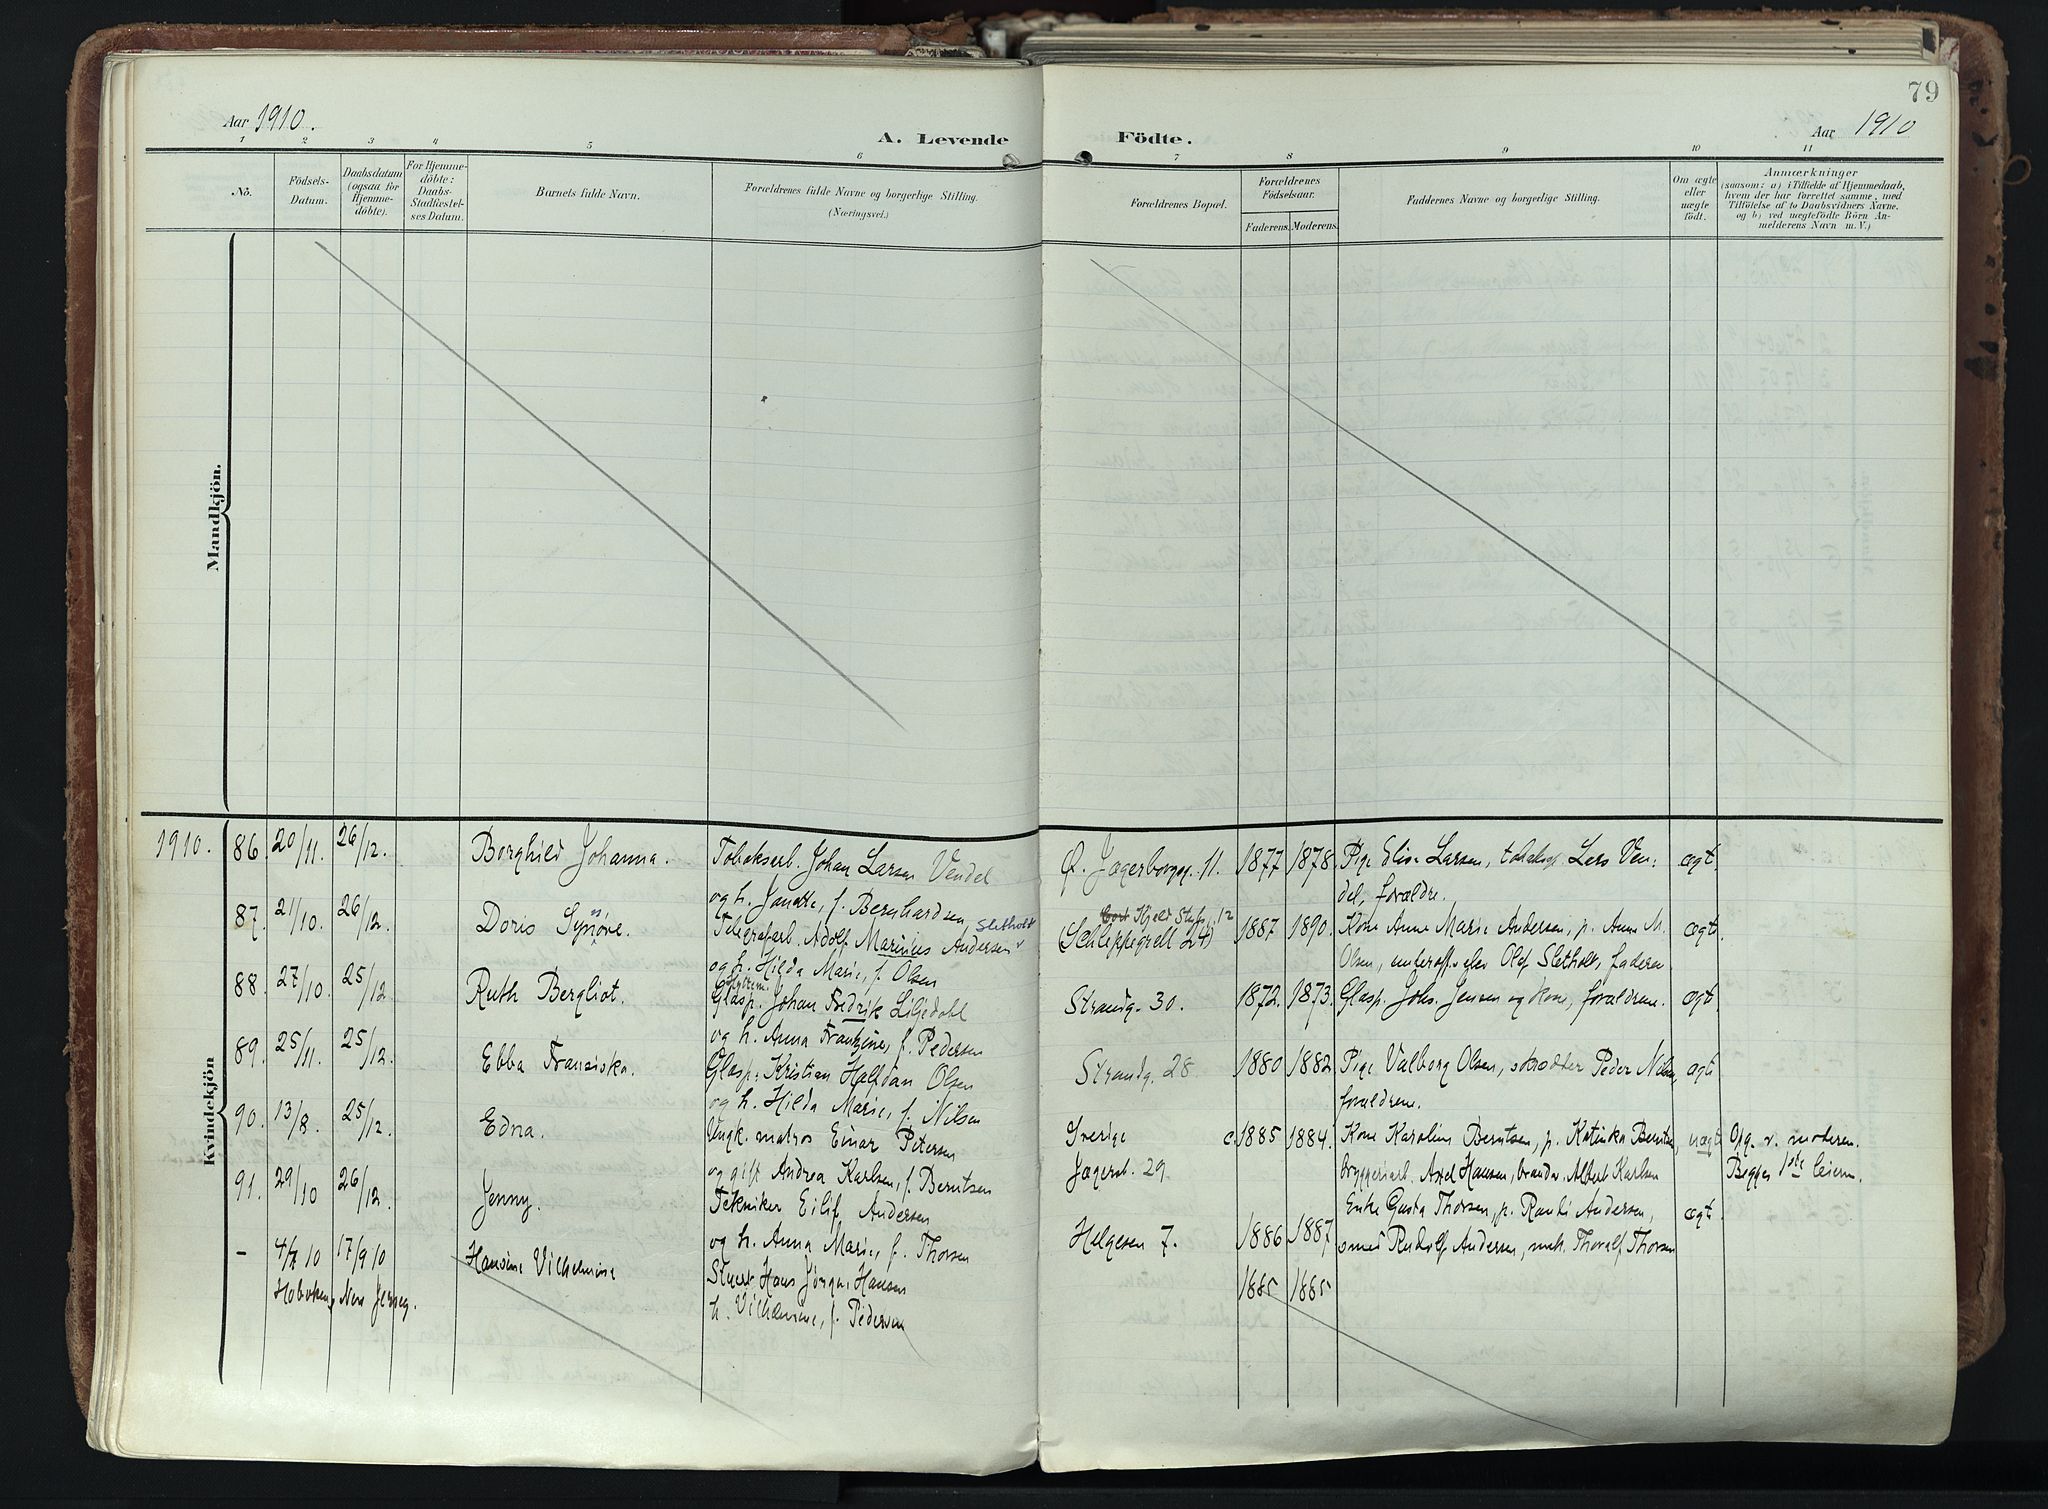 79
Aar 1910.
A. Levende
Födte.
Aar 1910
1 2 3 4 5 6 7 8 9 10 11
No.
Födsels-
Datum.
Daabsdatum
(ogsaa for
Hjemme-
döbte).
For Hjemme-
döbte:
Daabs-
Stadfæstel-
ses Datum.
Barnets fulde Navn.
Forældrenes fulde Navne og borgerlige Stilling.
(Næringsvei.)
Forældrenes Bopæl.
Forældrenes
Födselsaar.
Faderens. Moderens.
Faddernes Navne og borgerlige Stilling.
Om ægte
eller
uægte
födt.
Anmærkninger
(saasom: a) i Tilfælde af Hjemmedaab,
hvem der har forrettet samme, med
Tilföielse af to Daabsvidners Navne.
og b) ved uægtefödte Börn An-
melderens Navn m. V.)
Mandkjön.
Kvindekjön
1910. 86. 20/11. 26/12. Borghild Johanna. Tobaksarb. Johan Larsen Vendel
og h. Jandte, f. Bernhardsen
Ø. Jægerborgg. 11. 1877 1878. Pige Elise Larsen, Lars Ven-
del, forældre. ægt.
87. 21/10. 26/12. Doris Synnøve. Telegrafarb. Adolf Marinius Andersen Sletholt
og h. Hilda Marie, f. Olsen
(Schleppegrell 24) 12 1887 1890. Kone Anne Marie Andersen, p. Anne M.
Olsen, underoff. elev Olof Sletholt, faderen. ægt.
88. 27/10. 25/12. Ruth Bergliot. Glasp. Johan Fredrik Liljedahl
og h. Anna Frantzine, f. Pedersen
Strandg. 30. 1872. 1873. Glasp. Johs. Jensen og kone, forældrene. ægt.
89. 25/11. 25/12. Ebba Franciska. Glasp. Kristian Halfdan Olsen
og h. Hilda Marie, f. Nilsen
Strandg. 28 1880 1882 Pige Valborg Olsen, Peder Nilsen,
forældrene. ægt.
90. 13/8. 25/12. Edna. Ungk. matros Einar Petersen
og gift Andrea Karlsen, f. Berntsen
Sverige c. 1885 1884. Kone Karoline Berntsen, p. Katinka Berntsen,
Jægerb. 29 bryggeriarb. Axel Hansen, Albert Karlsen
uægt. Opg. v. moderen.
Begges 1ste leierm.
91. 29/10 26/12. Jenny. Tekniker Eilif Andersen
og h. Anna Marie, f. Thorsen
Helgesen 7. 1886 1887 Enke Gusta Thorsen, p. Andersen,
Rudolf Andersen, Thoralf Thorsen ægt.
- 4/7 10 17/9 10 Hansine Vilhelmine Hans Jørgen Hansen
h. Vilhelmine, f. Pedersen
Hoboken, New Jersey.
1885 1885